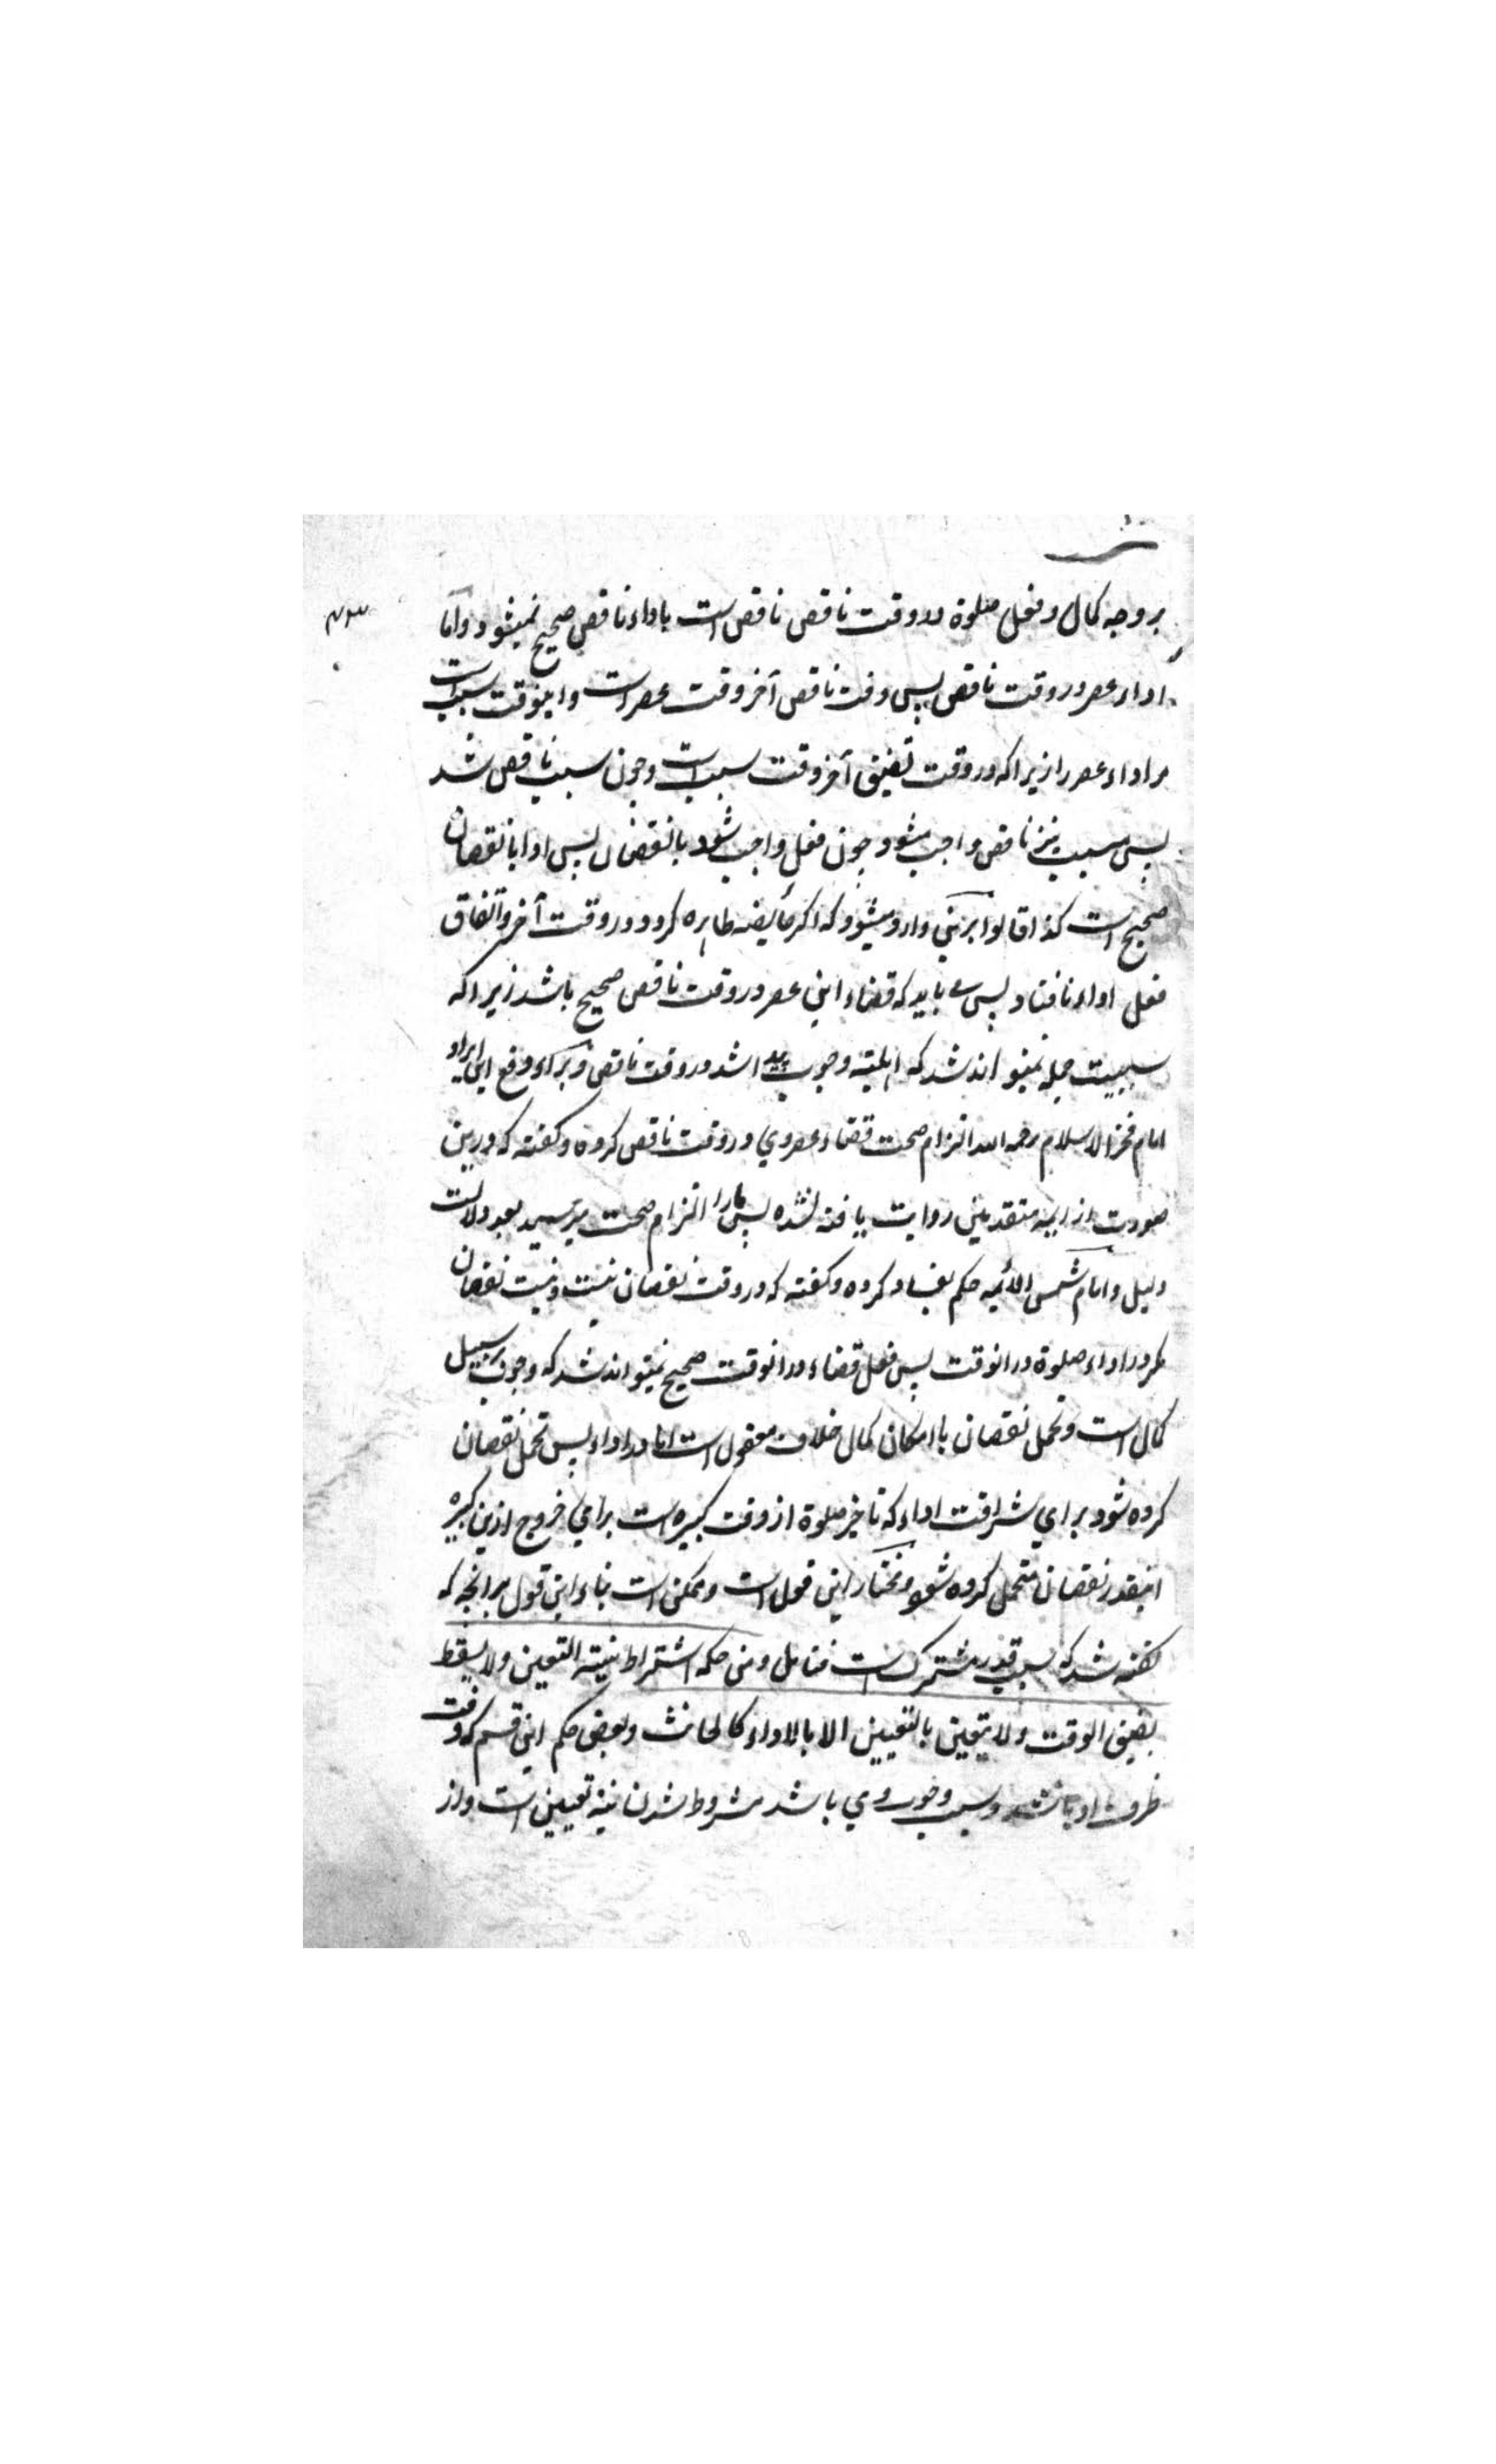 بر وجه کمال و فعل صلوة در وقت ناقص ناقص است باداء ناقص صحیح نمیشود و اما
اداء عصر در وقت ناقص پس وقت ناقص آخر وقت عصر است و اینوقت سبب است
مر اداء عصر را زیرا که در وقت تضیق آخر وقت سبب است و چون سبب ناقص شد
پس مسبب نیز ناقص واجب میشود چون فعل واجب شود بانقصان پس ادا بانقصان
صحیح است کذا قالوا برین وارد میشود که اکر حائضه طاهره کردد در وقت آخر و اتفاق
فعل اداء نافتاد پس می باید که قضاء این عصر در وقت ناقص صحیح باشد زیرا که
سببیت جمله نمیتواند شد که اهلیته وجوب پیدا شد در وقت ناقص و برای دفع این ایراد
امام فخر الاسلام رحمه الله التزام صحت قضاء عصر وی در وقت ناقص کرده و کفته که درین
صورت از ایمه متقدمین روایت یافته نشده پس مارا التزام صحت میرسد بعد دلالت
دلیل و امام شمس الائمه حکم بفساد کرده و کفته که در وقت نقصان نیست و نیست نقصان
مکر در اداء صلوة در انوقت پس فعل قضاء در انوقت صحیح نمیتواند شد که وجوب بر سبیل
کمال است و تحمل نقصان با امکان کمال خلاف معقول است اما در اداء پس تحمل نقصان
کرده شود برای شرافت اداء که تاخیر صلوة از وقت کبیره است برای خروج ازین کبیره
اینقدر نقصان متحمل کرده شود و مختار این قول است و ممکن است بناء این قول بر انچه که
کفته شد که سبب قدر مشترک است فتامل ومن حکمه اشتراط نیته التعیین ولا یسقط
بضیق الوقت ولا یتعین بالتعیین الا بالاداء کالحانث و بعض حکم این قسم که وقت
ظرف اد باشد و سبب وجوب وی باشد مشروط شدن نیة تعیین است و از